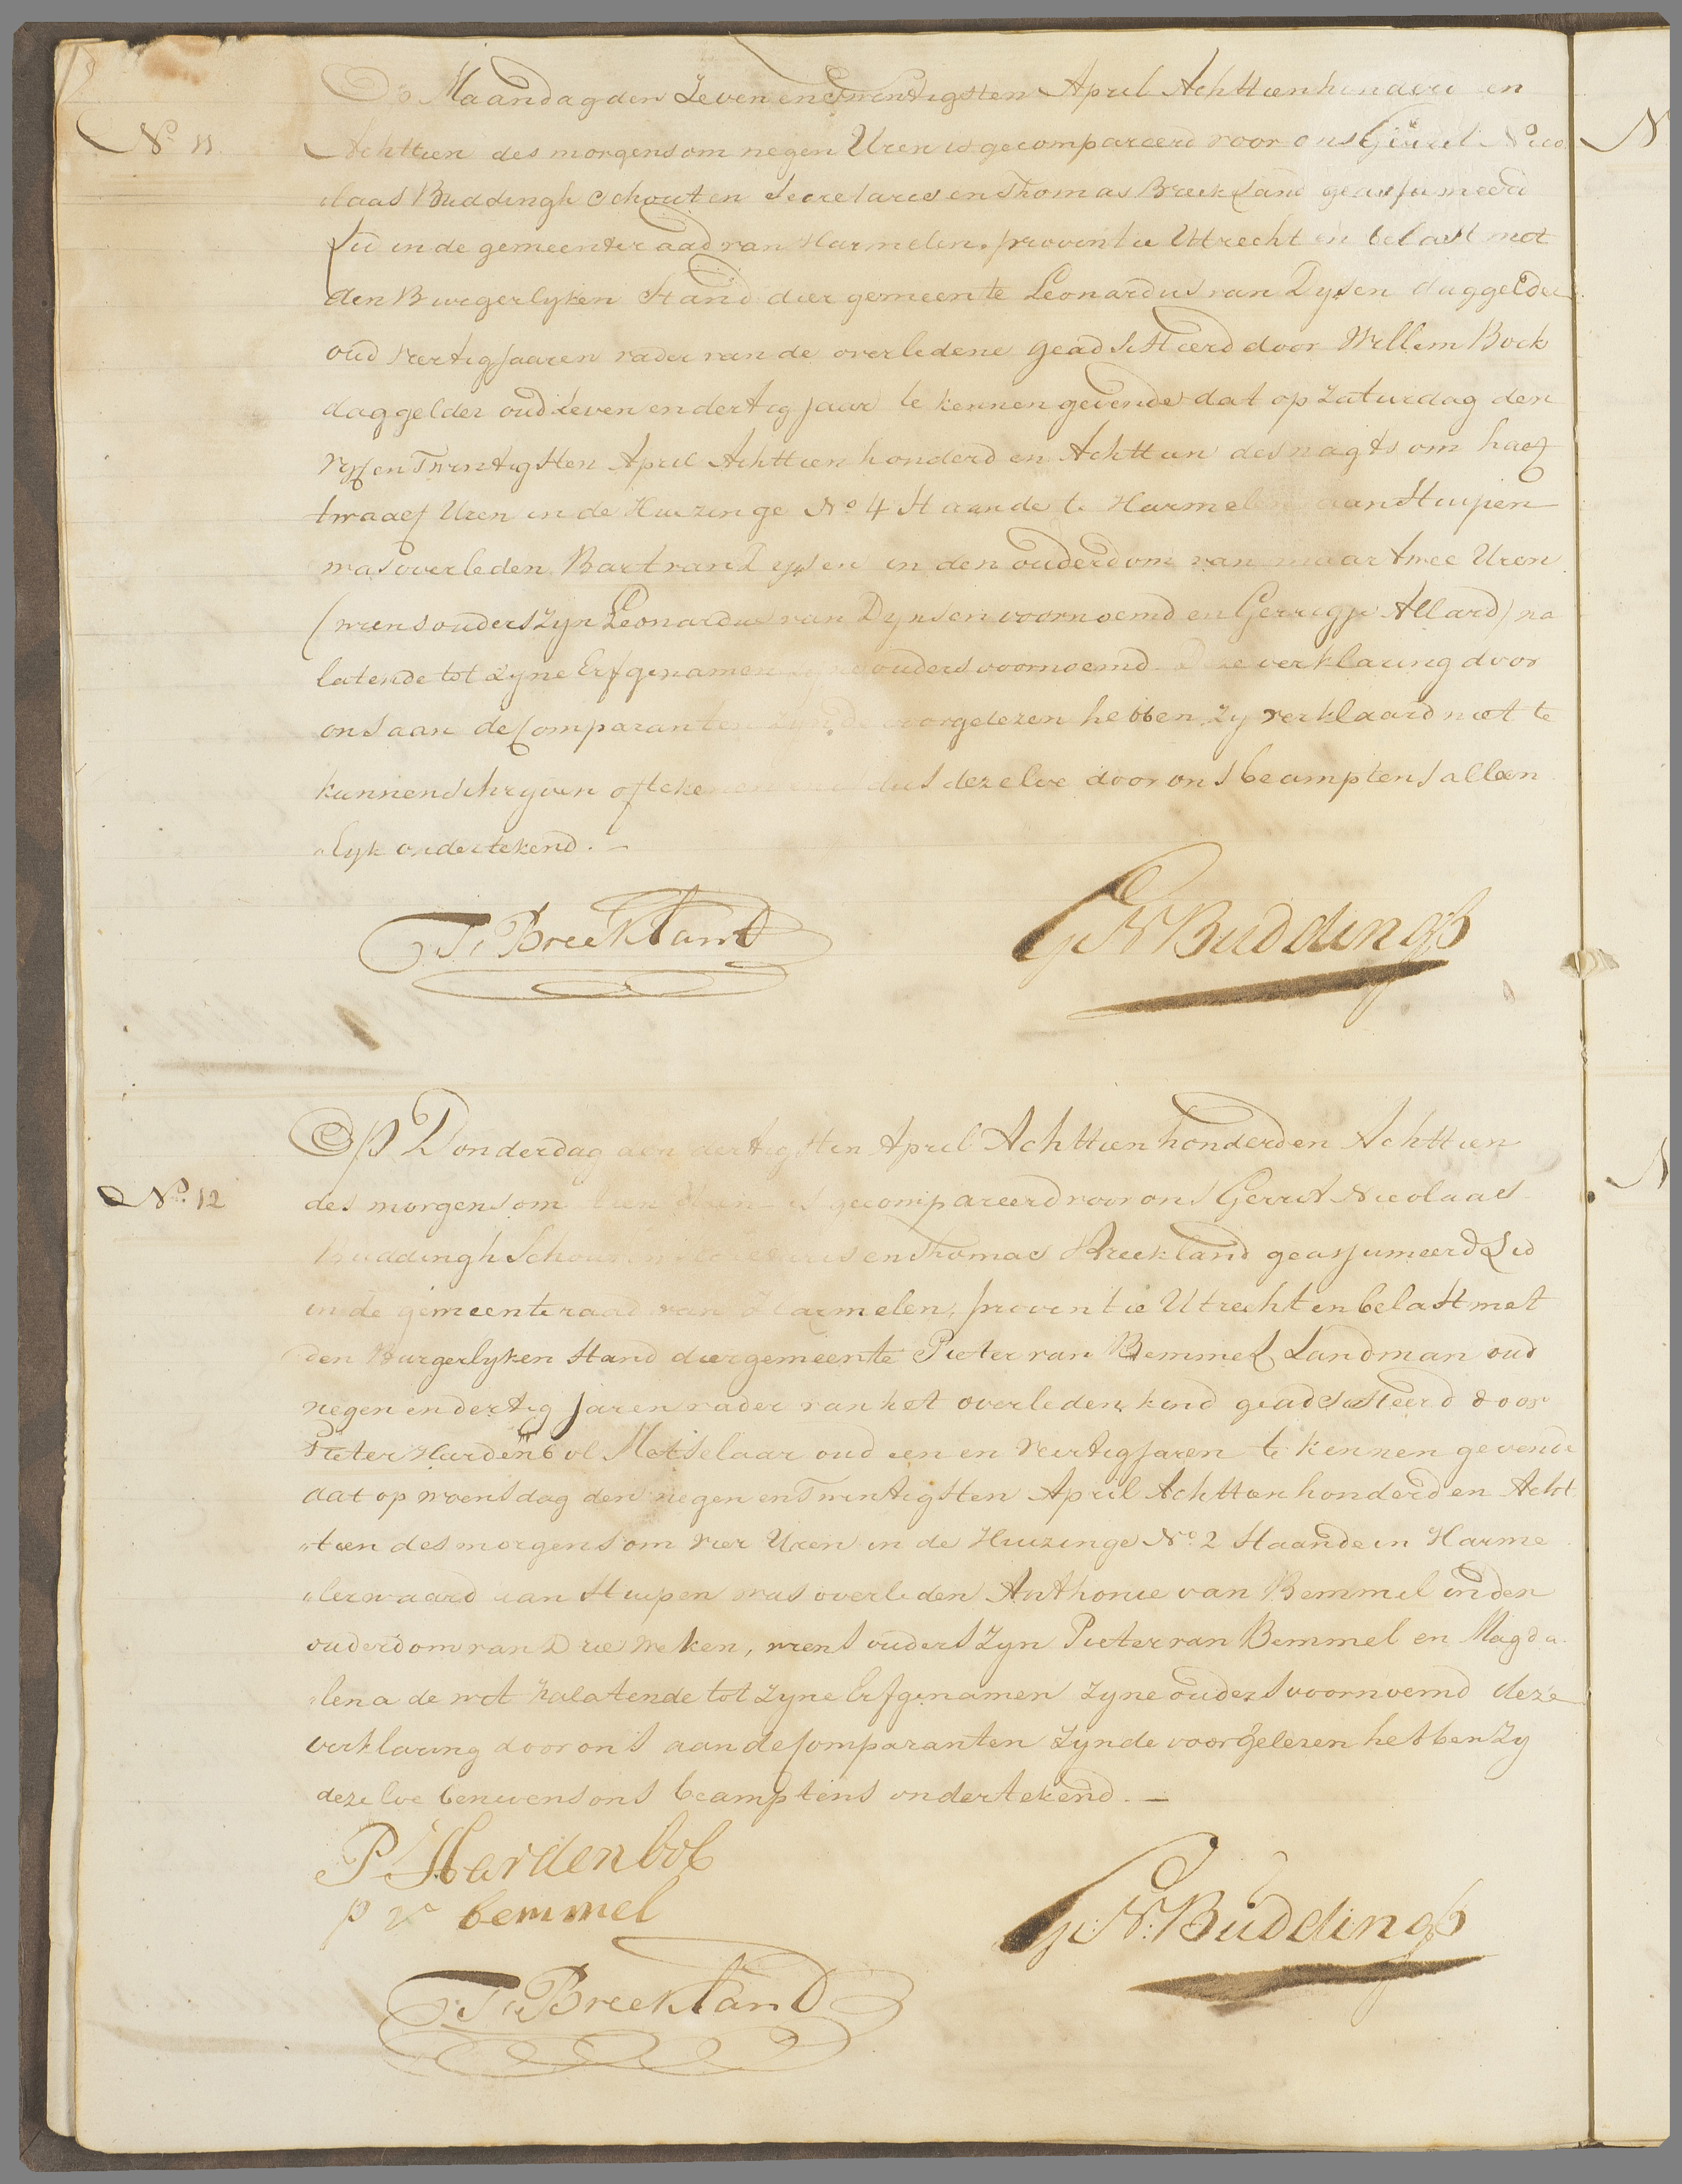 Op Maandag den Zeven en Twintigsten April Achttienhonderd en
No 11.
Achttien des morgens om negen Uren is gecompareerd voor ons Gerrit Nico
„laas Buddingh Schout en Secretaris en Thomas Breekland geassumeerd
Lid in de gemeenteraad van Harmelen, provintie Uttrecht en belast met
den Burgerlyken Stand dier gemeente Leonardus van Dysen daggelder
oud veertig Jaaren vader van de overledene geadsisteerd door Willem Bock
daggelder oud Zeven en dertig Jaar te kennen gevende dat op Zaturdag den
Vyf en Twintigsten April Achttien honderd en Achttien des nagts om half
twaalf Uren in de Huizinge No 4 Staande te Harmelen aan Stuipen
was overleden Bart van Dysen in den ouderdom van maar twee Uren
(wiens ouders Zyn Leonardus van Dynsen voornoemd en Gerrigje Allard) na
latende tot Zyne Erfgenamen zyne ouders voornoemd Deze verklaring door
ons aan de Comparanten Zynde voorgelezen hebben Zy verklaard niet te
kunnen schryven of tekenen en is dus dezelve door ons beamptens alleen
„lyk ondertekend. —
T: Breekland
G: N: Buddingh
Op Donderdag den dertigsten April Achttien honderd en Achttien
No. 12
des morgens om tien Uren is gecompareerd voor ons Gerrit Nicolaas
Buddingh Schout en Secretaris en Thomas Breekland geassumeerd Lid
in de gemeenteraad van Harmelen, provintie Utrecht en belast met
den Burgerlyken Stand dier gemeente Pieter van Bemmel Landman oud
negen en dertig Jaren vader van het overleden kind geadsisteerd door
Pieter Hardenbol Metselaar oud een en Veertig Jaren te kennen gevende
dat op woensdag den negen en Twintigsten April Achttien honderd en Acht
„tien des morgens om vier Uren in de Huizinge No. 2 Staande in Harme
„lerwaard aan Stuipen was overleden Anthonie van Bemmel in den
ouderdom van Drie Weken, wiens ouders Zyn Pieter van Bemmel en Magda
„lena de wit Nalatende tot Zyne Erfgenamen Zyne ouders voornoemd deze
verklaring door ons aan de Comparanten Zynde voorgelezen hebben Zy
dezelve benevens ons beamptens ondertekend. —
P Hardenbol
p v bemmel
G: N: Buddingh
T: Breekland